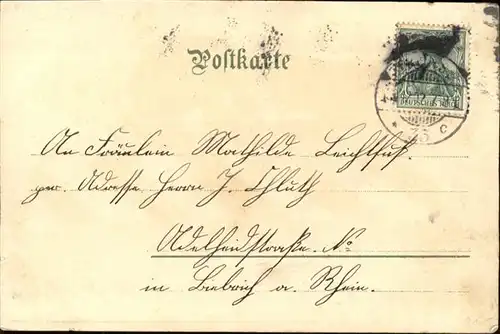 Postkarte
DEUTSCHES REICH
C
An Fräulein Mathilde Leichtfuß.
per. Adresse Herrn J. Schlüth
Adelheidstraße. No
in Biebrich a. Rhein.